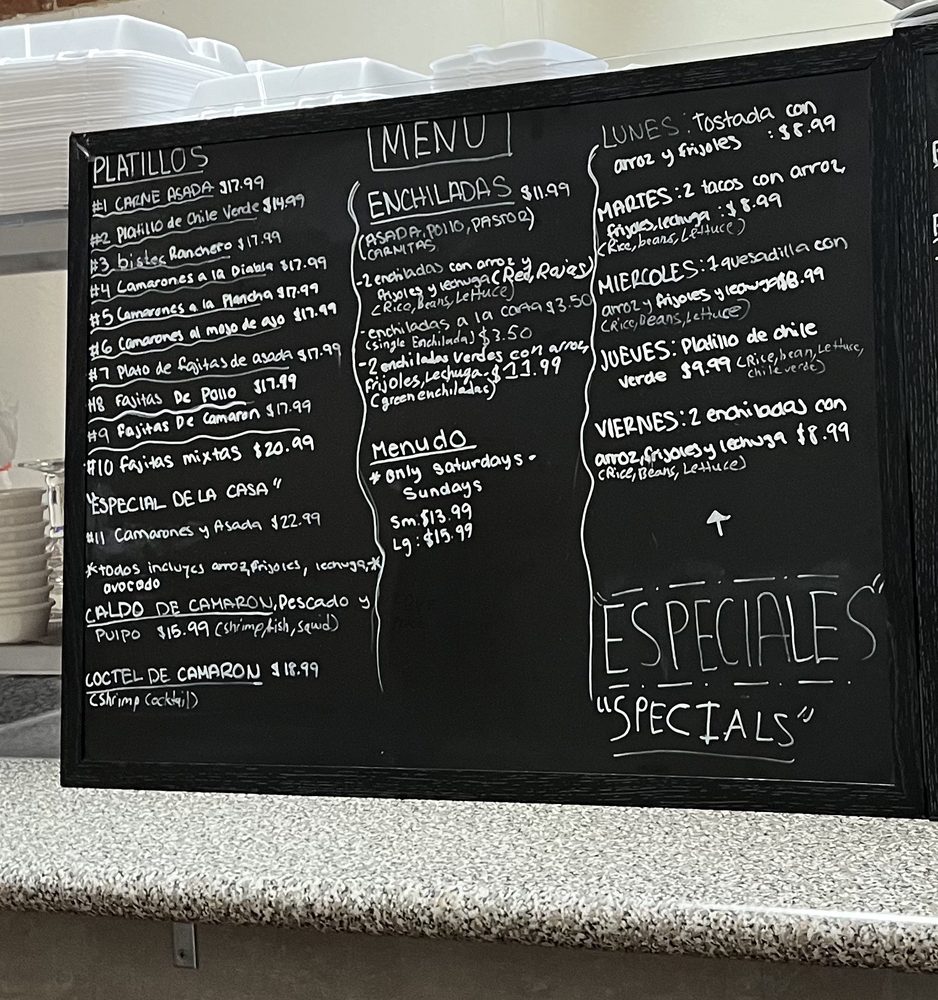 PLATILLOS
#1 CARNE ASADA $17.99
#2 Platillo de Chile Verde $14.99
#3 bistec Ranchero $17.99
#4 Camarones a la Diabla $17.99
#5 Camarones a la Plancha $17.99
#6 Camarones al mojo de ajo $17.99
#7 Plato de fajitas de asada $17.99
#8 Fajitas De Pollo $17.99
#9 Fajitas De Camaron $17.99
#10 Fajitas mixtas $20.99
"ESPECIAL DE LA CASA"
#11 Camarones y Asada $22.99
*todos incluyes arroz, frijoles, lechuga, *
avocado
CALDO DE CAMARON, Pescado y
PULPO $15.99 (shrimp, fish, squid)
COCTEL DE CAMARON $18.99
(Shrimp Cocktail)
MENU
ENCHILADAS $11.99
(ASADA, POLLO, PASTOR)
CARNITAS
-2 enchiladas con arroz y
frijoles y lechuga (Red, Rajas)
(Rice, Beans, Lettuce)
-enchiladas a la carta $3.50
(single Enchilada) $3.50
-2 enchiladas verdes con arroz,
Frijoles, Lechuga. $11.99
(green enchiladas)
Menudo
* only saturdays -
Sundays
Sm: $13.99
Lg: $15.99
LUNES: Tostada con
arroz y frijoles : $8.99
MARTES: 2 tacos con arroz,
frijoles, lechuga : $8.99
(Rice, beans, Lettuce)
MIERCOLES: 1 quesadilla con
arroz y frijoles y lechuga $8.99
(Rice, Beans, Lettuce)
JUEVES: Platillo de chile
verde $9.99 (Rice, bean, Lettuce,
chile verde)
VIERNES: 2 enchiladas con
arroz, frijoles y lechuga $8.99
(Rice, Beans, Lettuce)
"ESPECIALES"
"SPECIALS"